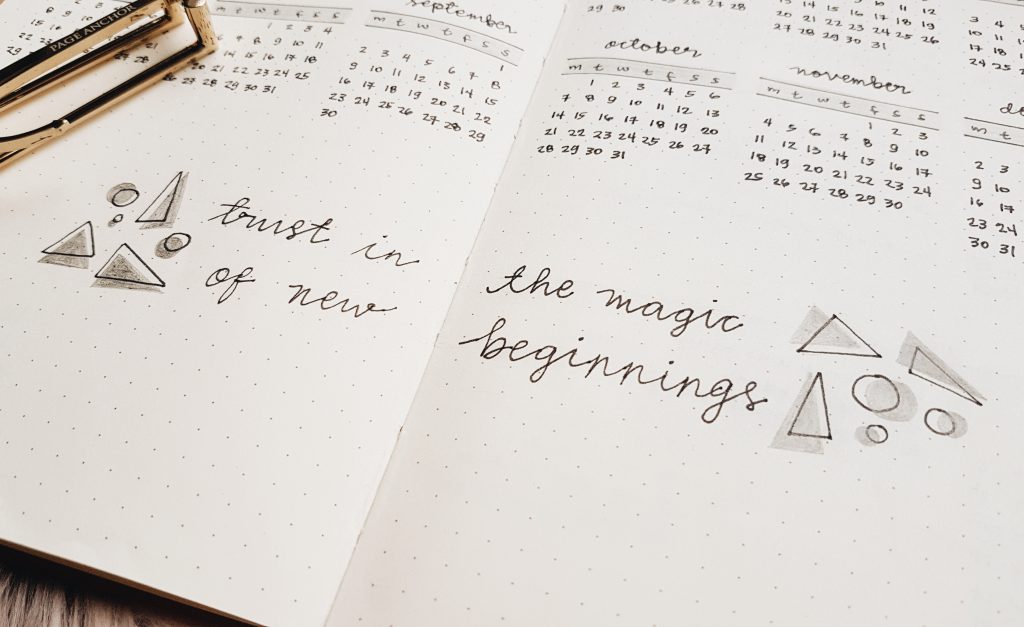 PAGE ANCHOR
t w t f s s
1 2 3 4
8 9 10 11
15 16 17 18
20 21 22 23 24 25
28 29 30 31
september
m t w t f s s
1
2 3 4 5 6 7 8
9 10 11 12 13 14 15
16 17 18 19 20 21 22
23 24 25 26 27 28 29
30
trust in
of new
29 30
26 27 28
october
m t w t f s s
1 2 3 4 5 6
7 8 9 10 11 12 13
14 15 16 17 18 19 20
21 22 23 24 25 26 27
28 29 30 31
13 14 15 16 17 18 19
20 21 22 23 24 25 26
27 28 29 30 31
november
m t w t f s s
1 2 3
4 5 6 7 8 9 10
11 12 13 14 15 16 17
18 19 20 21 22 23 24
25 26 27 28 29 30
3 4
10 11
17 18
24 25
m t
2 3
9 10
16 17
23 24
30 31
the magic
beginnings